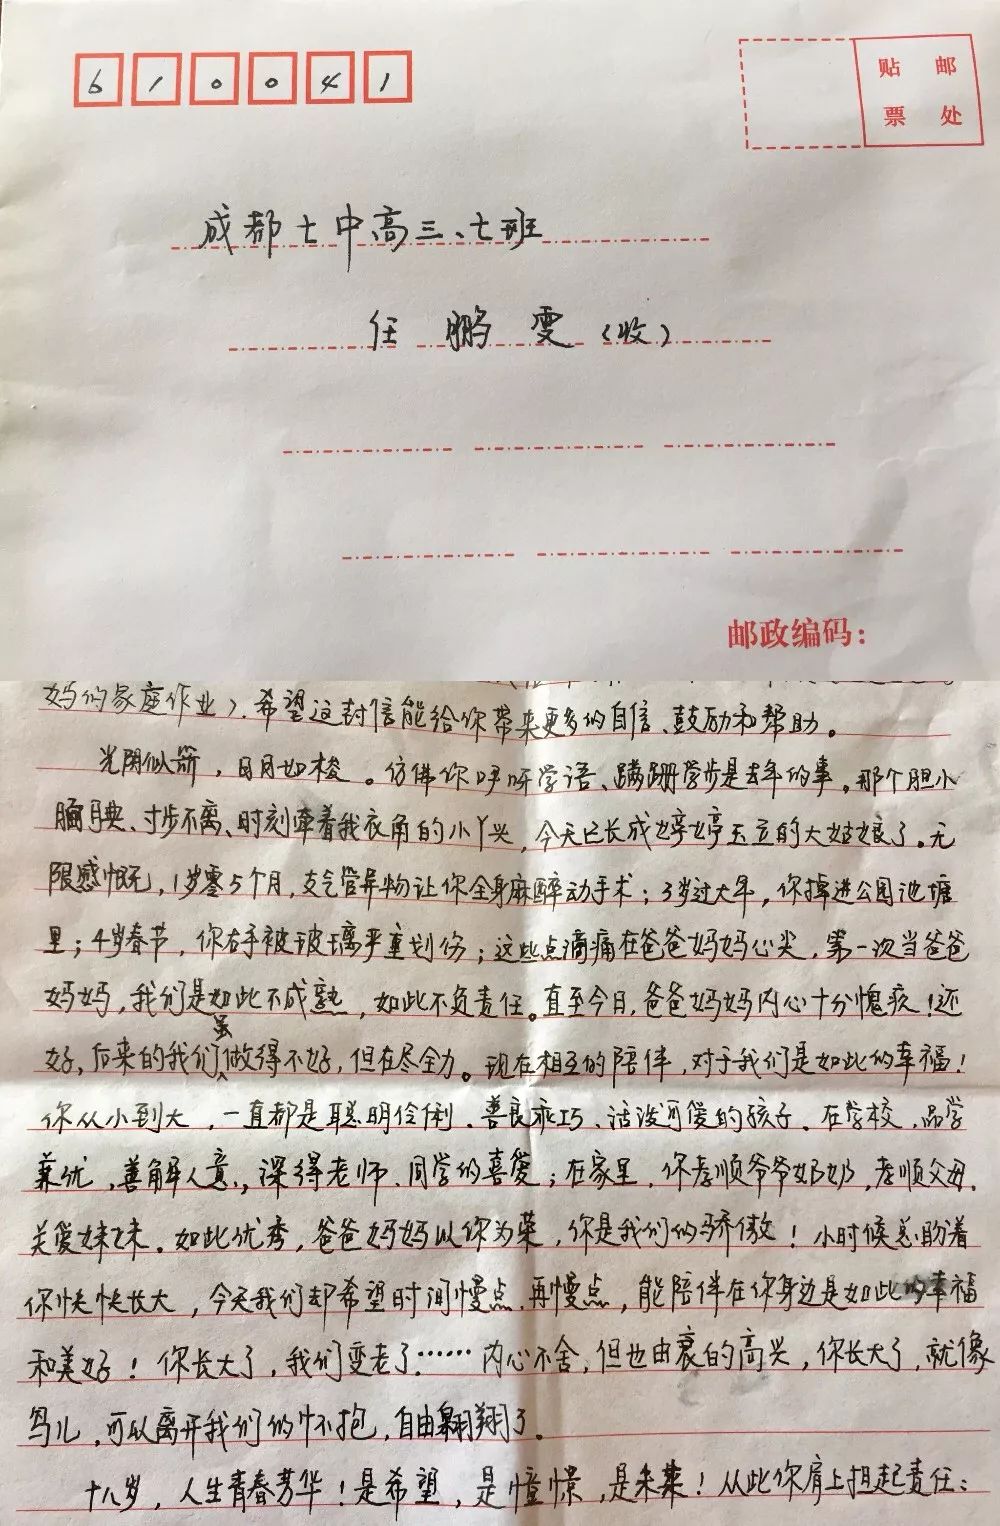 610041
贴 邮
票 处
成都七中高三、七班
任鹏雯(收)
邮政编码：
妈的家庭作业)。希望这封信能给你带来更多的自信、鼓励和帮助。
光阴似箭，日月如梭。仿佛你呀呀学语、蹒跚学步是去年的事。那个胆小
腼腆、寸步不离、时刻牵着我衣角的小丫头，今天已长成婷婷玉立的大姑娘了。无
限感慨，1岁零5个月，支气管异物让你全身麻醉动手术；3岁过大年，你掉进公园池塘
里；4岁春节，你右手被玻璃严重划伤；这些点滴痛在爸爸妈妈心尖，第一次当爸爸
妈妈，我们是如此不成熟，如此不负责任。直至今日，爸爸妈妈内心十分愧疚！还
好，后来的我们虽做得不好，但在尽全力。现在相互的陪伴，对于我们是如此的幸福！
你从小到大，一直都是聪明伶俐、善良乖巧、活泼可爱的孩子。在学校，品学
兼优，善解人意，深得老师、同学的喜爱；在家里，你孝顺爷爷奶奶，孝顺父母，
关爱妹妹。如此优秀，爸爸妈妈以你为荣，你是我们的骄傲！小时候总盼着
你快快长大，今天我们却希望时间慢点，再慢点，能陪伴在你身边是如此的幸福
和美好！你长大了，我们变老了……内心不舍，但也由衷的高兴，你长大了，就像
鸟儿，可以离开我们的怀抱，自由翱翔了。
十八岁，人生青春芳华！是希望，是憧憬，是未来！从此你肩上担起责任：